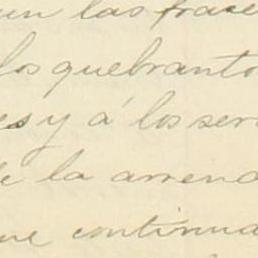 un las frase
los quebranto
es y á los serv
de la arrend
ue continua